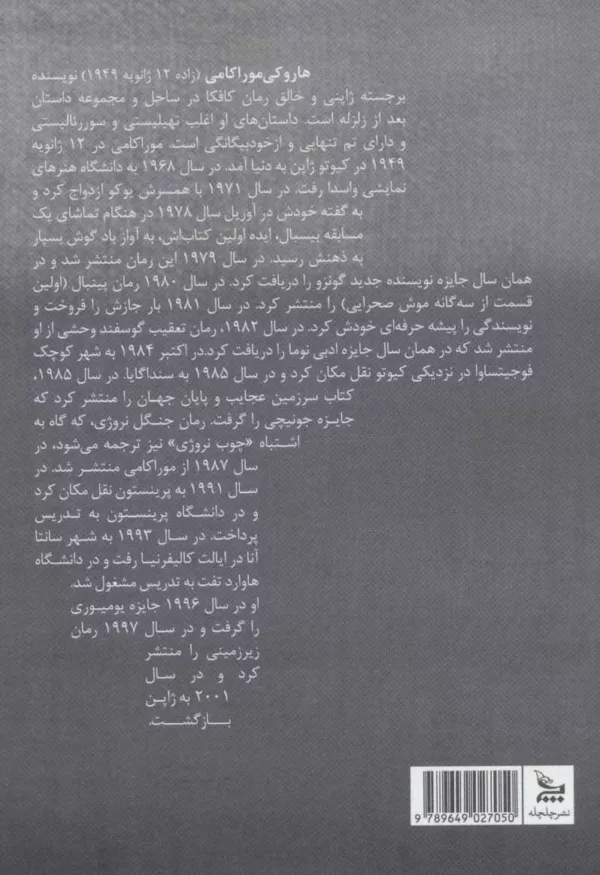 هاروکی موراکامی (زاده ۱۲ ژانویه ۱۹۴۹) نویسنده
برجسته ژاپنی و خالق رمان کافکا در ساحل و مجموعه داستان
بعد از زلزله است. داستان‌های او اغلب نهیلیستی و سوررئالیستی
و دارای تم تنهایی و ازخودبیگانگی است. موراکامی در ۱۲ ژانویه
۱۹۴۹ در کیوتو ژاپن به دنیا آمد. در سال ۱۹۶۸ به دانشگاه هنرهای
نمایشی واسدا رفت. در سال ۱۹۷۱ با همسرش یوکو ازدواج کرد و
به گفته خودش در آوریل سال ۱۹۷۸ در هنگام تماشای یک
مسابقه بیسبال، ایده اولین کتاب‌اش، به آواز باد گوش بسپار
به ذهنش رسید. در سال ۱۹۷۹ این رمان منتشر شد و در
همان سال جایزه نویسنده جدید گونزو را دریافت کرد. در سال ۱۹۸۰ رمان پینبال (اولین
قسمت از سه‌گانه موش صحرایی) را منتشر کرد. در سال ۱۹۸۱ بار جازش را فروخت و
نویسندگی را پیشه حرفه‌ای خودش کرد. در سال ۱۹۸۲، رمان تعقیب گوسفند وحشی از او
منتشر شد که در همان سال جایزه ادبی نوما را دریافت کرد.در اکتبر ۱۹۸۴ به شهر کوچک
فوجیتساوا در نزدیکی کیوتو نقل مکان کرد و در سال ۱۹۸۵ به سنداگایا. در سال ۱۹۸۵،
کتاب سرزمین عجایب و پایان جهان را منتشر کرد که
جایزه جونیچی را گرفت. رمان جنگل نروژی، که گاه به
اشتباه «چوب نروژی» نیز ترجمه می‌شود، در
سال ۱۹۸۷ از موراکامی منتشر شد. در
سال ۱۹۹۱ به پرینستون نقل مکان کرد
و در دانشگاه پرینستون به تدریس
پرداخت. در سال ۱۹۹۳ به شهر سانتا
آنا در ایالت کالیفرنیا رفت و در دانشگاه
هاوارد تفت به تدریس مشغول شد.
او در سال ۱۹۹۶ جایزه یومیوری
را گرفت و در سال ۱۹۹۷ رمان
زیرزمینی را منتشر
کرد و در سال
۲۰۰۱ به ژاپن
بازگشت.
نشر چلچله
9 789649 027050